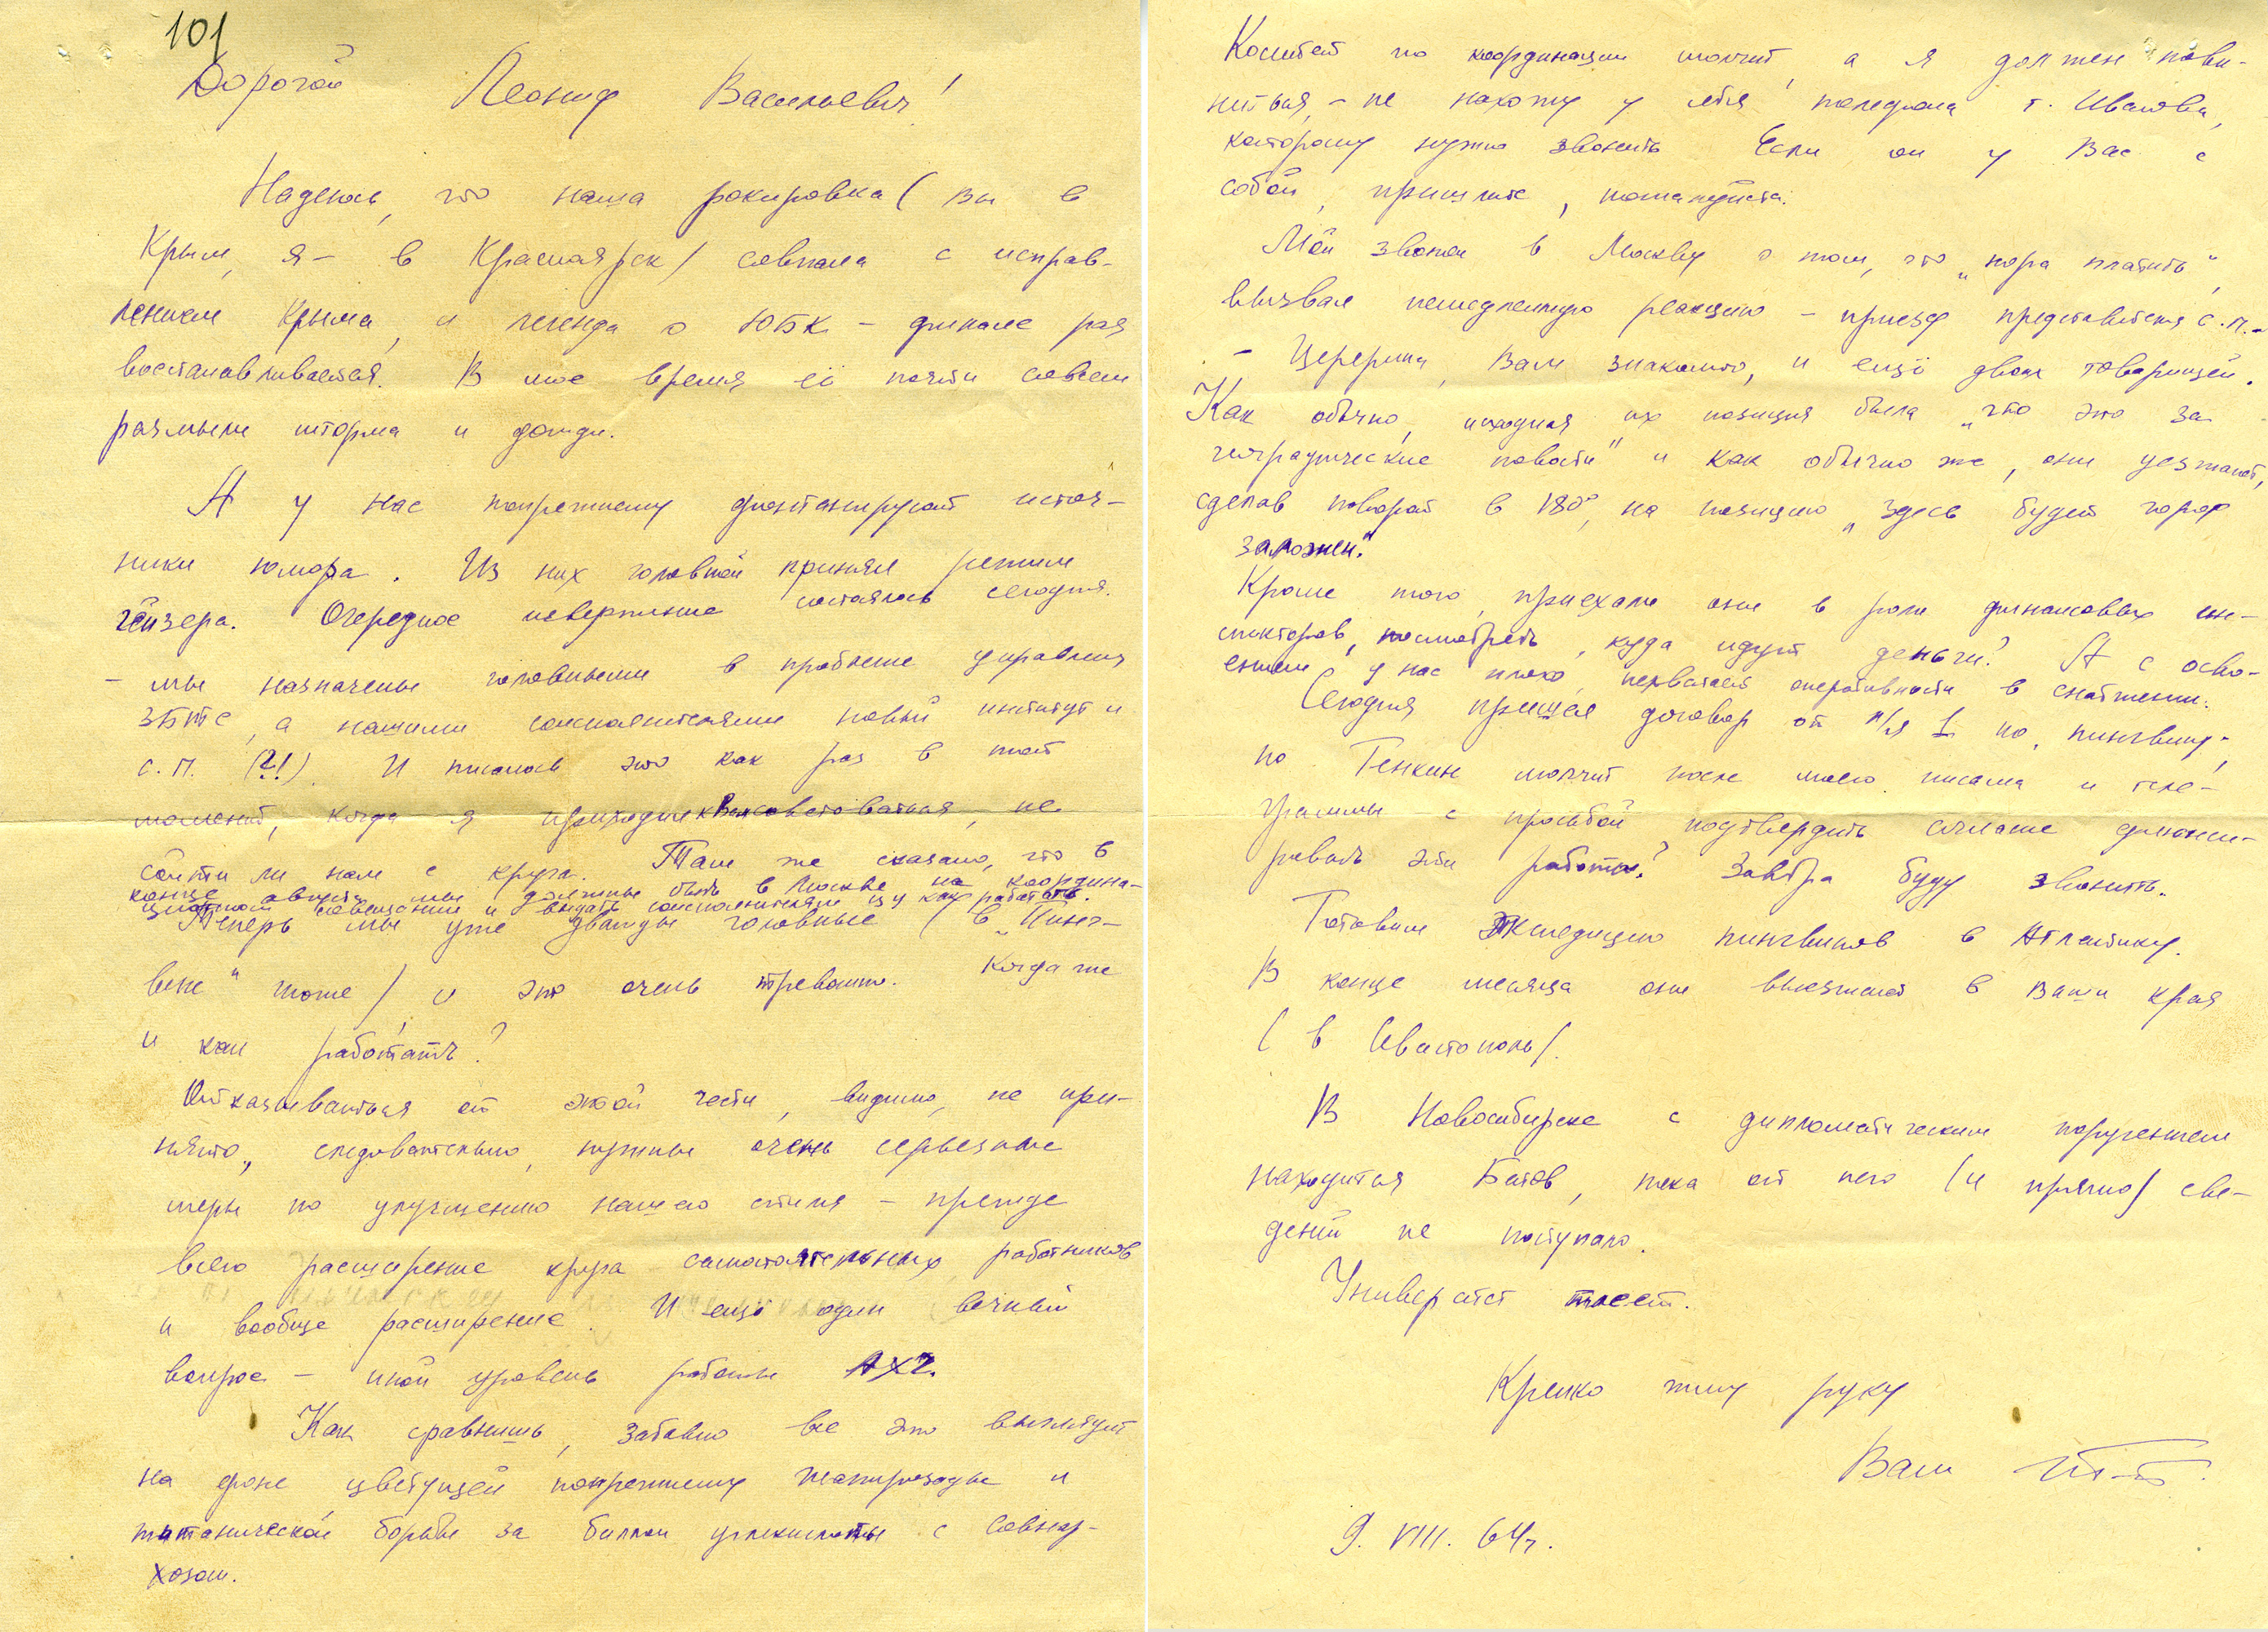 101
Дорогой Леонид Васильевич!
Надеюсь, что наша рокировка (Вы в
Крым, я – в Красноярск) совпала с исправ-
лением Крыма, и легенда о ЮБК – финале раз
восстанавливается. В мое время её почти совсем
размыли шторма и дожди.
А у нас попрежнему фонтанируют источ-
ники юмора. Из них головной принял режим
гейзера. Очередное извержение состоялось сегодня.
– мы назначены головными в проблеме управления
ЗБТС, а нашими соисполнителями новый институт и
с.п. (?!). И писалось это как раз в тот
момент, когда я приходил к Вам советоваться, не
сойти ли нам с круга. Там же сказано, что в
конце августа мы должны быть в Москве на координа-
ционном совещании и выдать соисполнителям ЦУ как работать.
Теперь мы уже дважды головные (в „Пинг-
вине" тоже) и это очень тревожно. Когда же
и как работать?
Отказываться от этой чести, видимо, не при-
нято, следовательно, нужны очень серьезные
меры по улучшению нашего стиля – прежде
всего расширение круга самостоятельных работников
и вообще расширение. И ещё один вечный
вопрос – иной уровень работы АХЧ.
Как сравнишь, забавно все это выглядит
на фоне цветущей попрежнему Театрозоды и
титанической борьбы за баллон углекислоты с Совнар-
хозом.
Комитет по координации молчит, а я должен пови-
ниться, – не нахожу у себя телефона т. Иванова,
которому нужно звонить. Если он у Вас с
собой, пришлите, пожалуйста.
Мой звонок в Москву о том, что „пора платить",
вызвал немедленную реакцию – приезд представителя с.п. –
– Церерина, Вам знакомого, и ещё двоих товарищей.
Как обычно, исходная их позиция была „что это за
географические новости" и как обычно же, они уезжают,
сделав поворот в 180°, на позицию „здесь будет город
заложен."
Кроме того, приехали они в роли финансовых ин-
спекторов, посмотреть, куда идут деньги? А с осво-
ением у нас плохо, нехватает оперативности в снабжении.
Сегодня пришел договор от п/я 1 по „пингвину",
но Генкин молчит после моего письма и теле-
граммы с просьбой подтвердить согласие финанси-
ровать эти работы. Завтра буду звонить.
Готовим экспедицию пингвинов в Атлантику.
В конце месяца они выезжают в Ваши края
(в Севастополь).
В Новосибирске с дипломатическим поручением
находится Батов, пока от него (и прямо) све-
дений не поступало.
Университет тлеет.
Крепко жму руку
Ваш
9. VIII. 64г.